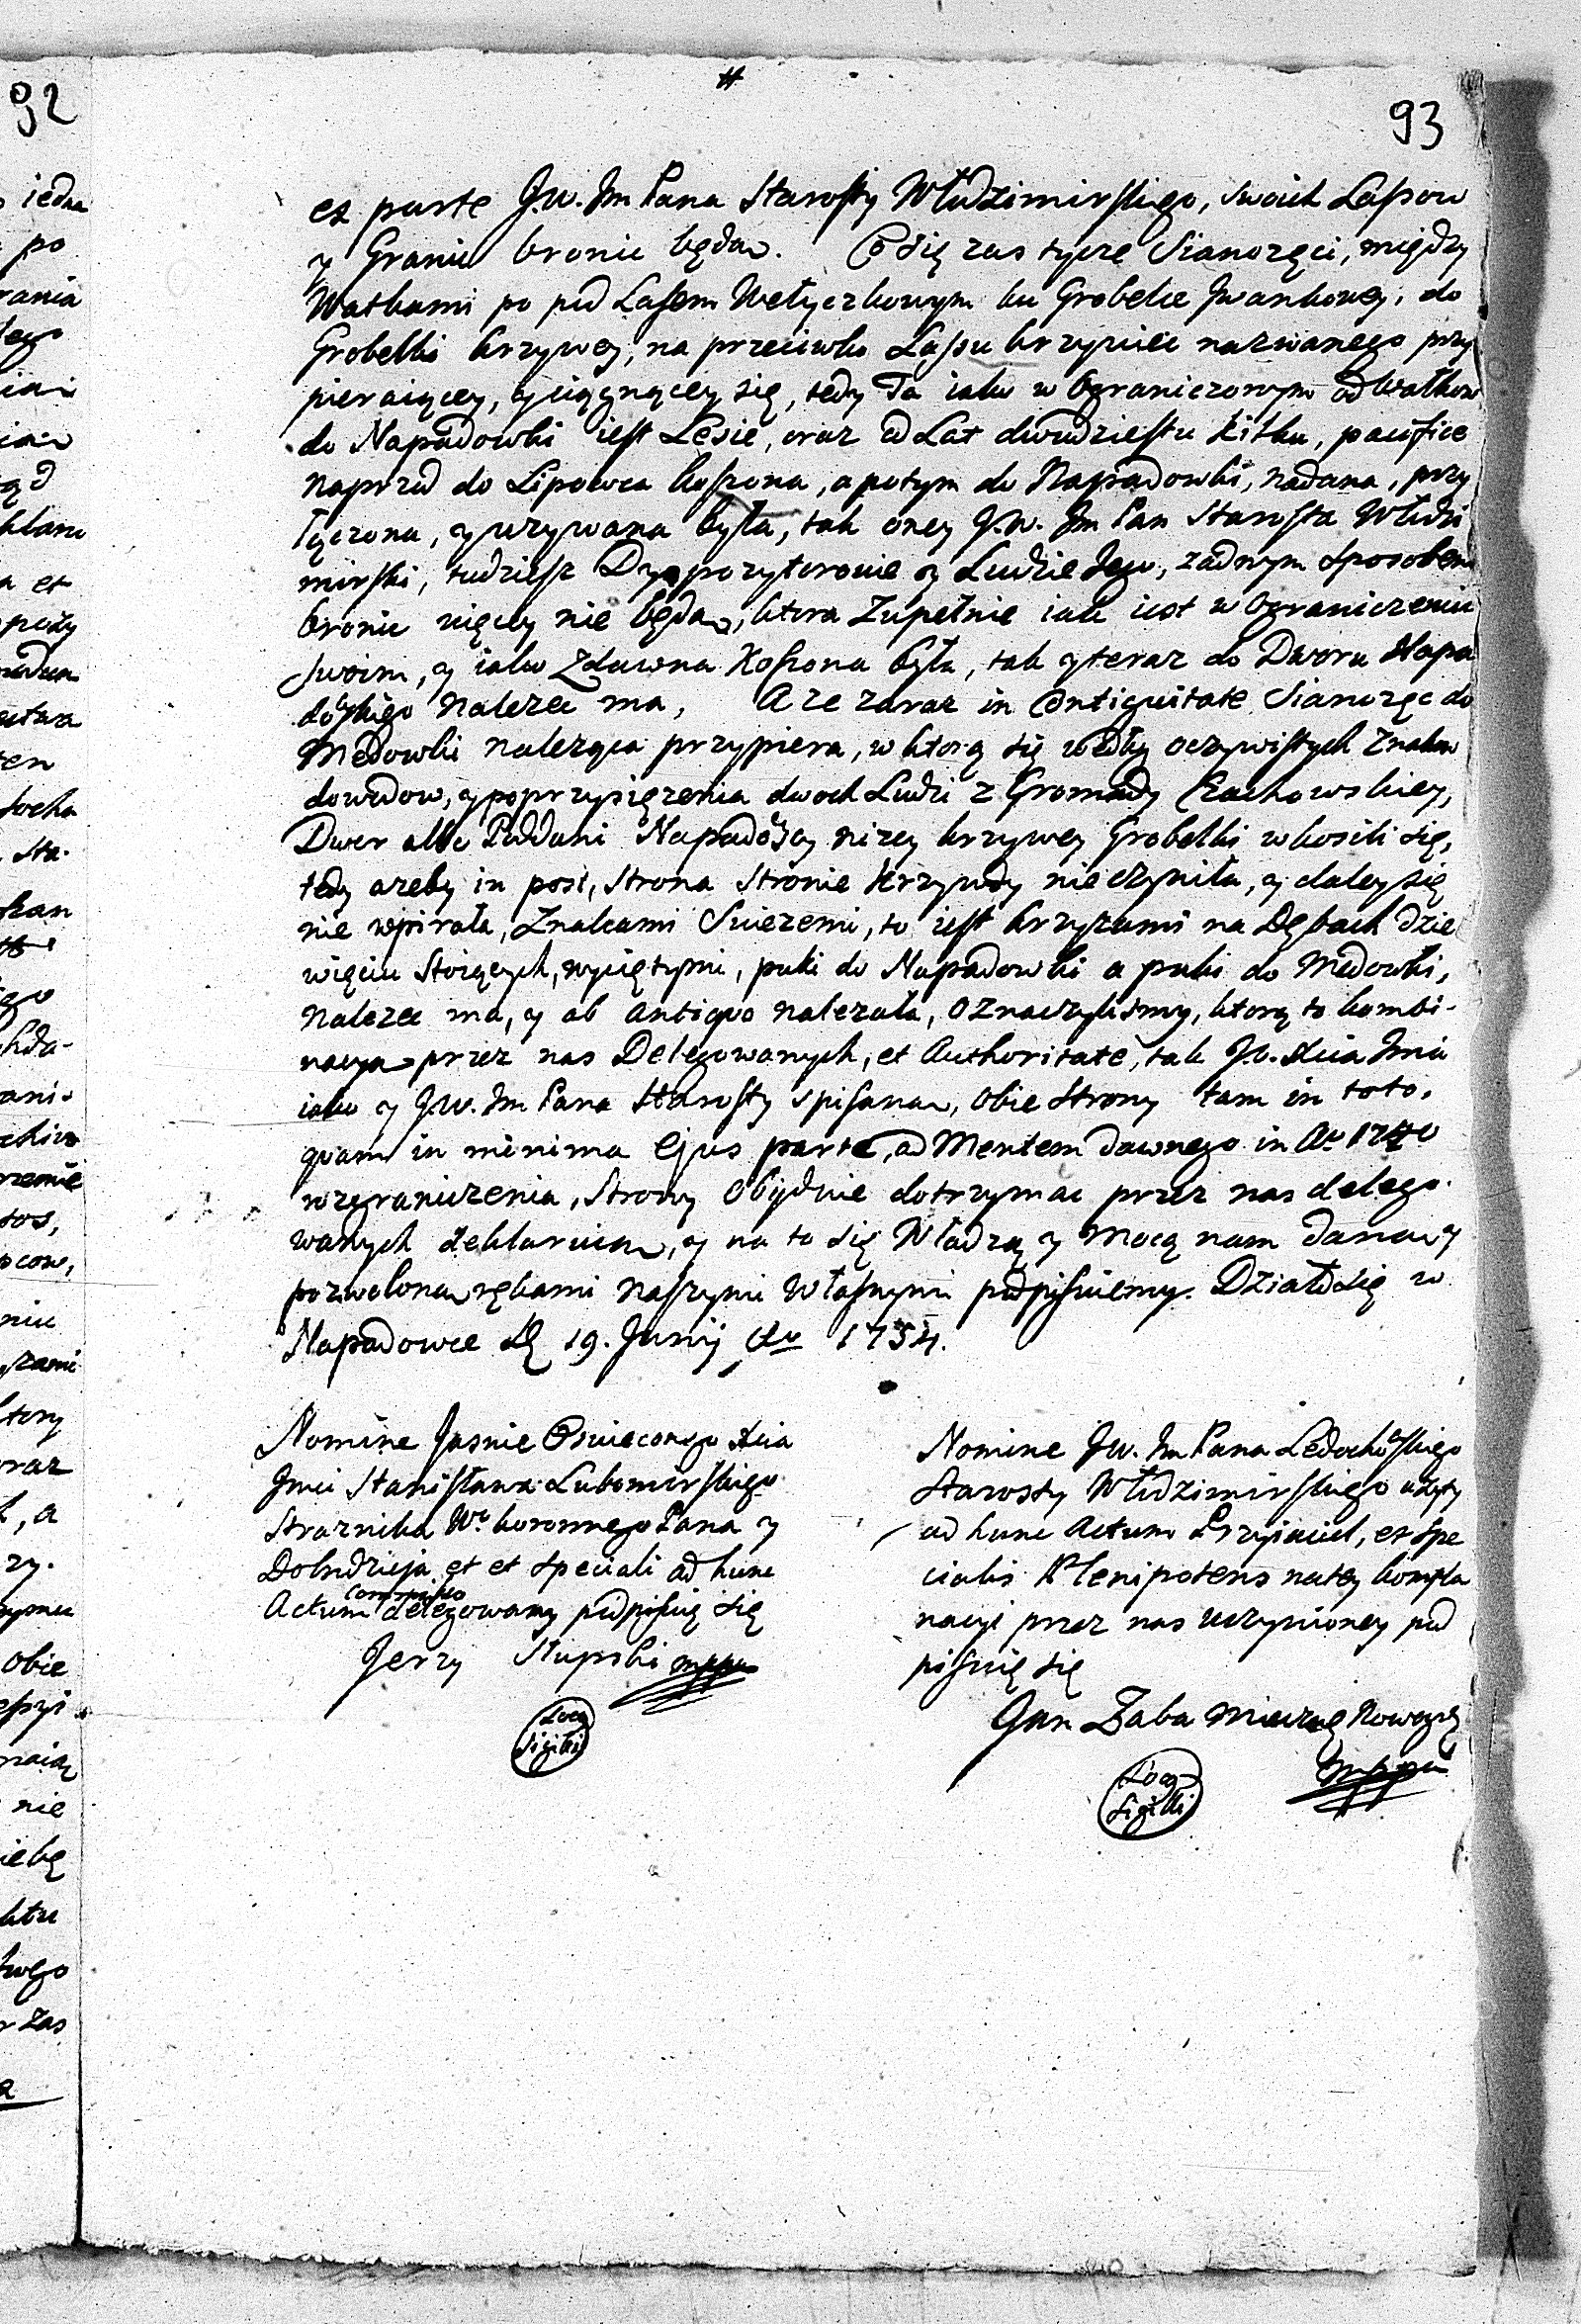 93
ex parte J.W. Jm Pana Starosty Włodzimirskiego, swoich Lassow
y Granic bronić będą. Co się zas tycze Sianożęci, między
Wałkami po pod Lasem Wełyczkowym ku Grobelce Jwankowey, do
Grobelki krzywey, na przeciwko Lassu krzywiec nazwanego przy
pieraiącey, y ciągnącey się, tedy Ta iako w Ograniczonym od Wałkow
do Napadowki iest Lesie, oraz od Lat dwudziestu kilku, pacifice
naprzod do Lipowca koszona, a potym do Napadowki, nadana, przy
łączona, y uzywana była, tak oney J.W. Jm Pan Starosta Włodzi
mirski, tudziesz Dyspozytorowie y Ludzie Jego, zadnym sposobem
bronić więcey nie będą, ktora Zupełnie iak iest w Ograniczeniu
swoim, y iako Zdawna Koszona była, tak y teraz do Dworu Napa
dowskiego nalezec ma, A ze zaraz in Contiguitate Sianozęc do
Medowki naleząca przypiera, w ktorą się według oczywistych Znakow
dowodow, y poprzysięzenia dwoch Ludzi z Gromady Czachowskiey,
Dwor albo Poddani Napadowscy nizey krzywey Grobelki wkosili się,
tedy azeby in post, Strona Stronie Krzywdy nie czyniła, y daley się
nie wpirała, Znakami Swiezemi, to iest krzyzami na Dębach dzie
więciu Stoiących, wyciętymi, puki do Napadowki a puki do Medowki,
nalezec ma, y ab antiquo nalezała, oznaczylismy, ktorą to kombi-
nacyą przez nas Delegowanych, et Authoritate, tak J.O. Xcia Jmci
iako y J.W. Jm Pana Starosty spisaną, Obie Strony tam in toto,
quam in minima Ejus parte, ad Mentem dawnego in Ao 1740
rozgraniczenia, Strony Obydwie dotrzymac przez nas delego-
wanych deklaruią, y na to się Władzą y Mocą nam daną y
pozwoloną rękami naszymi Własnymi podpisuiemy. Działo się w
Napadowce D. 19. Junij Ao 1754.
Nomine Jasnie Oswieconego Xcia
Jmci Stanisława Lubomirskiego
Straznika Wo koronnego Pana y
Dobrodzieja et et speciali ad hunc
Actum Compromisso delegowany podpisuię się
Jerzy Słupski mppa
Locq
Sigilli
Nomine J.W. Jm Pana Ledochowskiego
Starosty Włodzimirskiego uzyty
ad hunc Actum Przyiaciel, et Spe
cialis Plenipotens na tey kompla
nacyi przez nas uczynioney pod
pisuię się
Jan Zaba Miecznik Nowogrdz
mppa
Locq
Sigilli